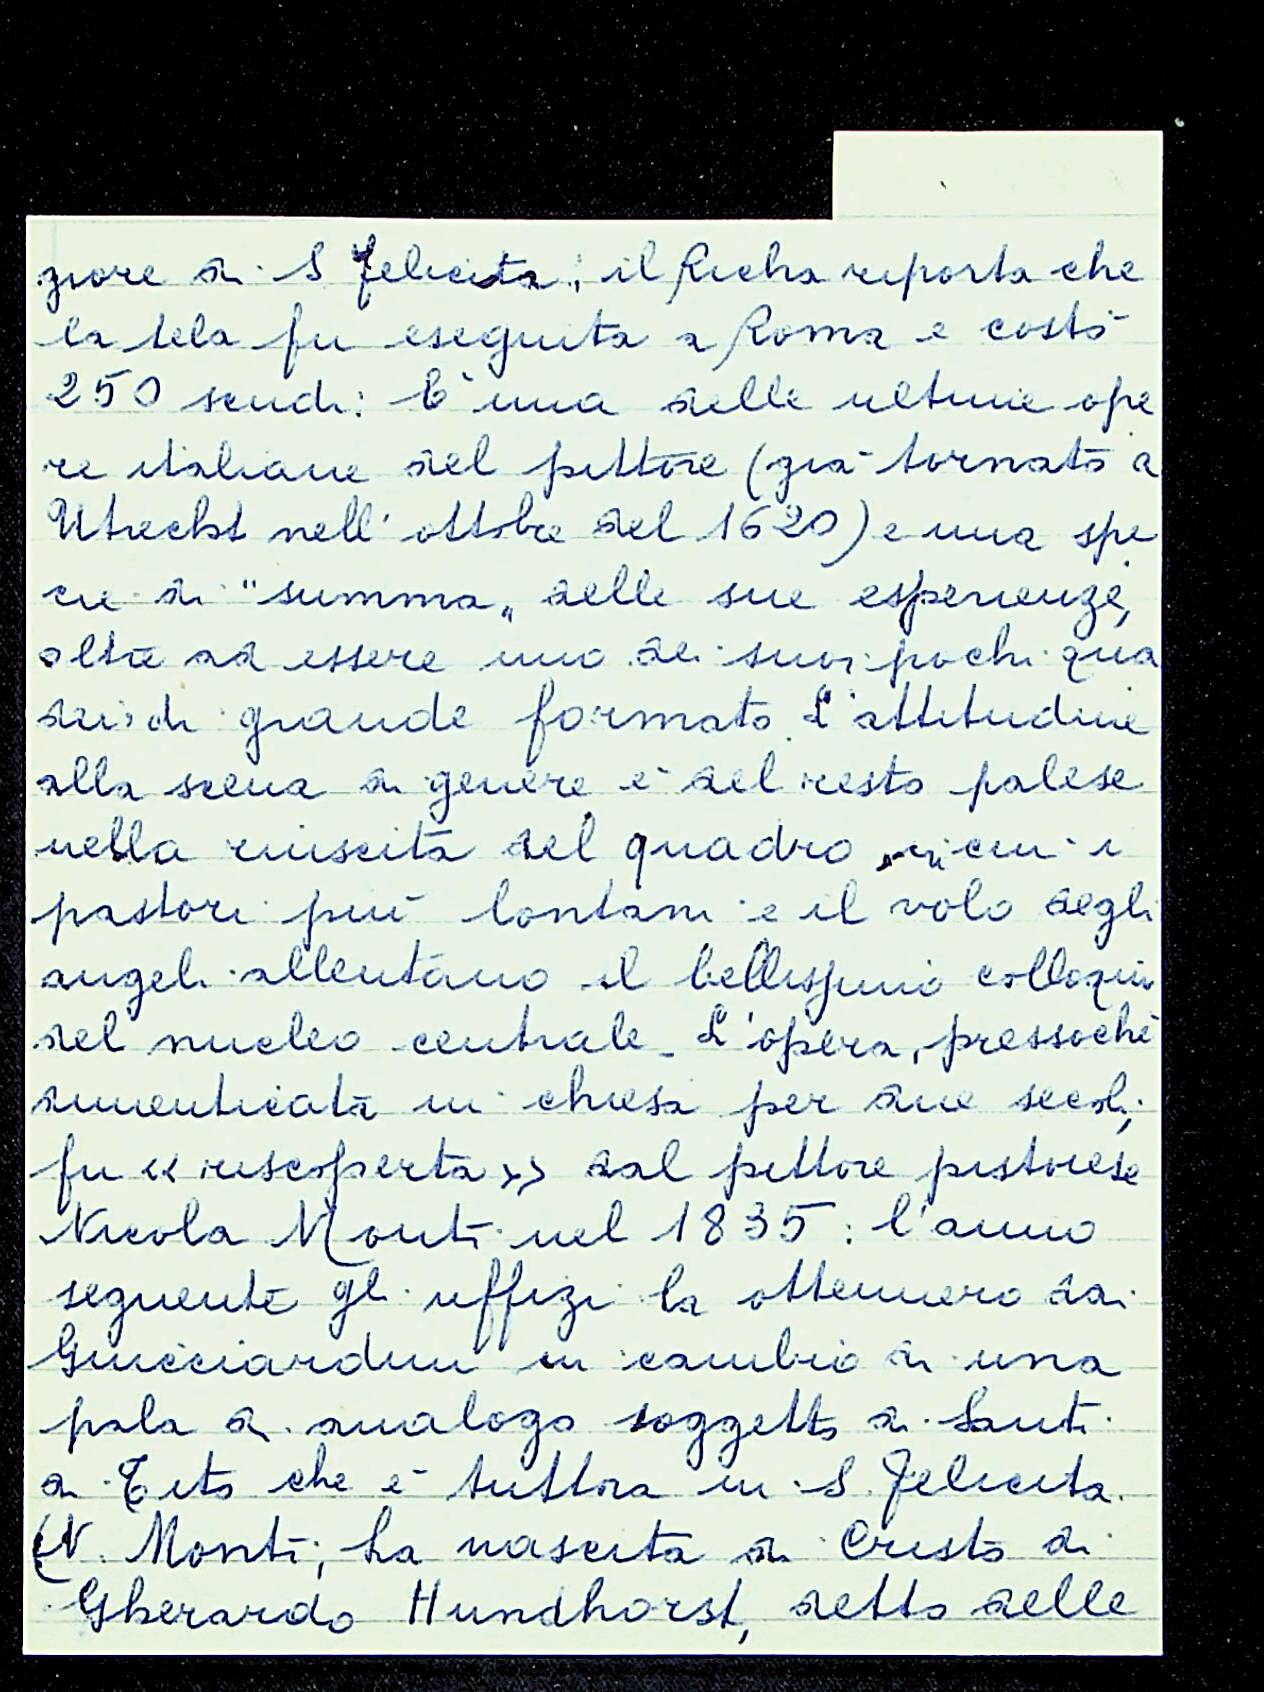 giore di S Felicita; il Richa riporta che
la tela fu eseguita a Roma e costò
250 scudi: È una delle ultime ope
re italiane del pittore (già tornato a
Utrecht nell'ottobre del 1620) e una spe
cie di "summa„ delle sue esperienze,
oltre ad essere uno dei suoi pochi qua
dri di grande formato. L'attitudine
alla scena di genere è del resto palese
nella riuscita del quadro in cui i
pastori più lontani e il volo degli
angeli allentano il bellissimo colloquio
del nucleo centrale. L'opera, pressochè
dimenticata in chiesa per due secoli,
fu «riscoperta» dal pittore pistoiese
Nicola Monti nel 1835: l'anno
seguente gli uffizi la ottennero dai
Guicciardini in cambio di una
pala di analogo soggetto di Santi
di Tito che è tuttora in S. Felicita.
(N. Monti, La nascita di Cristo di
Gherardo Hundhorst, detto delle